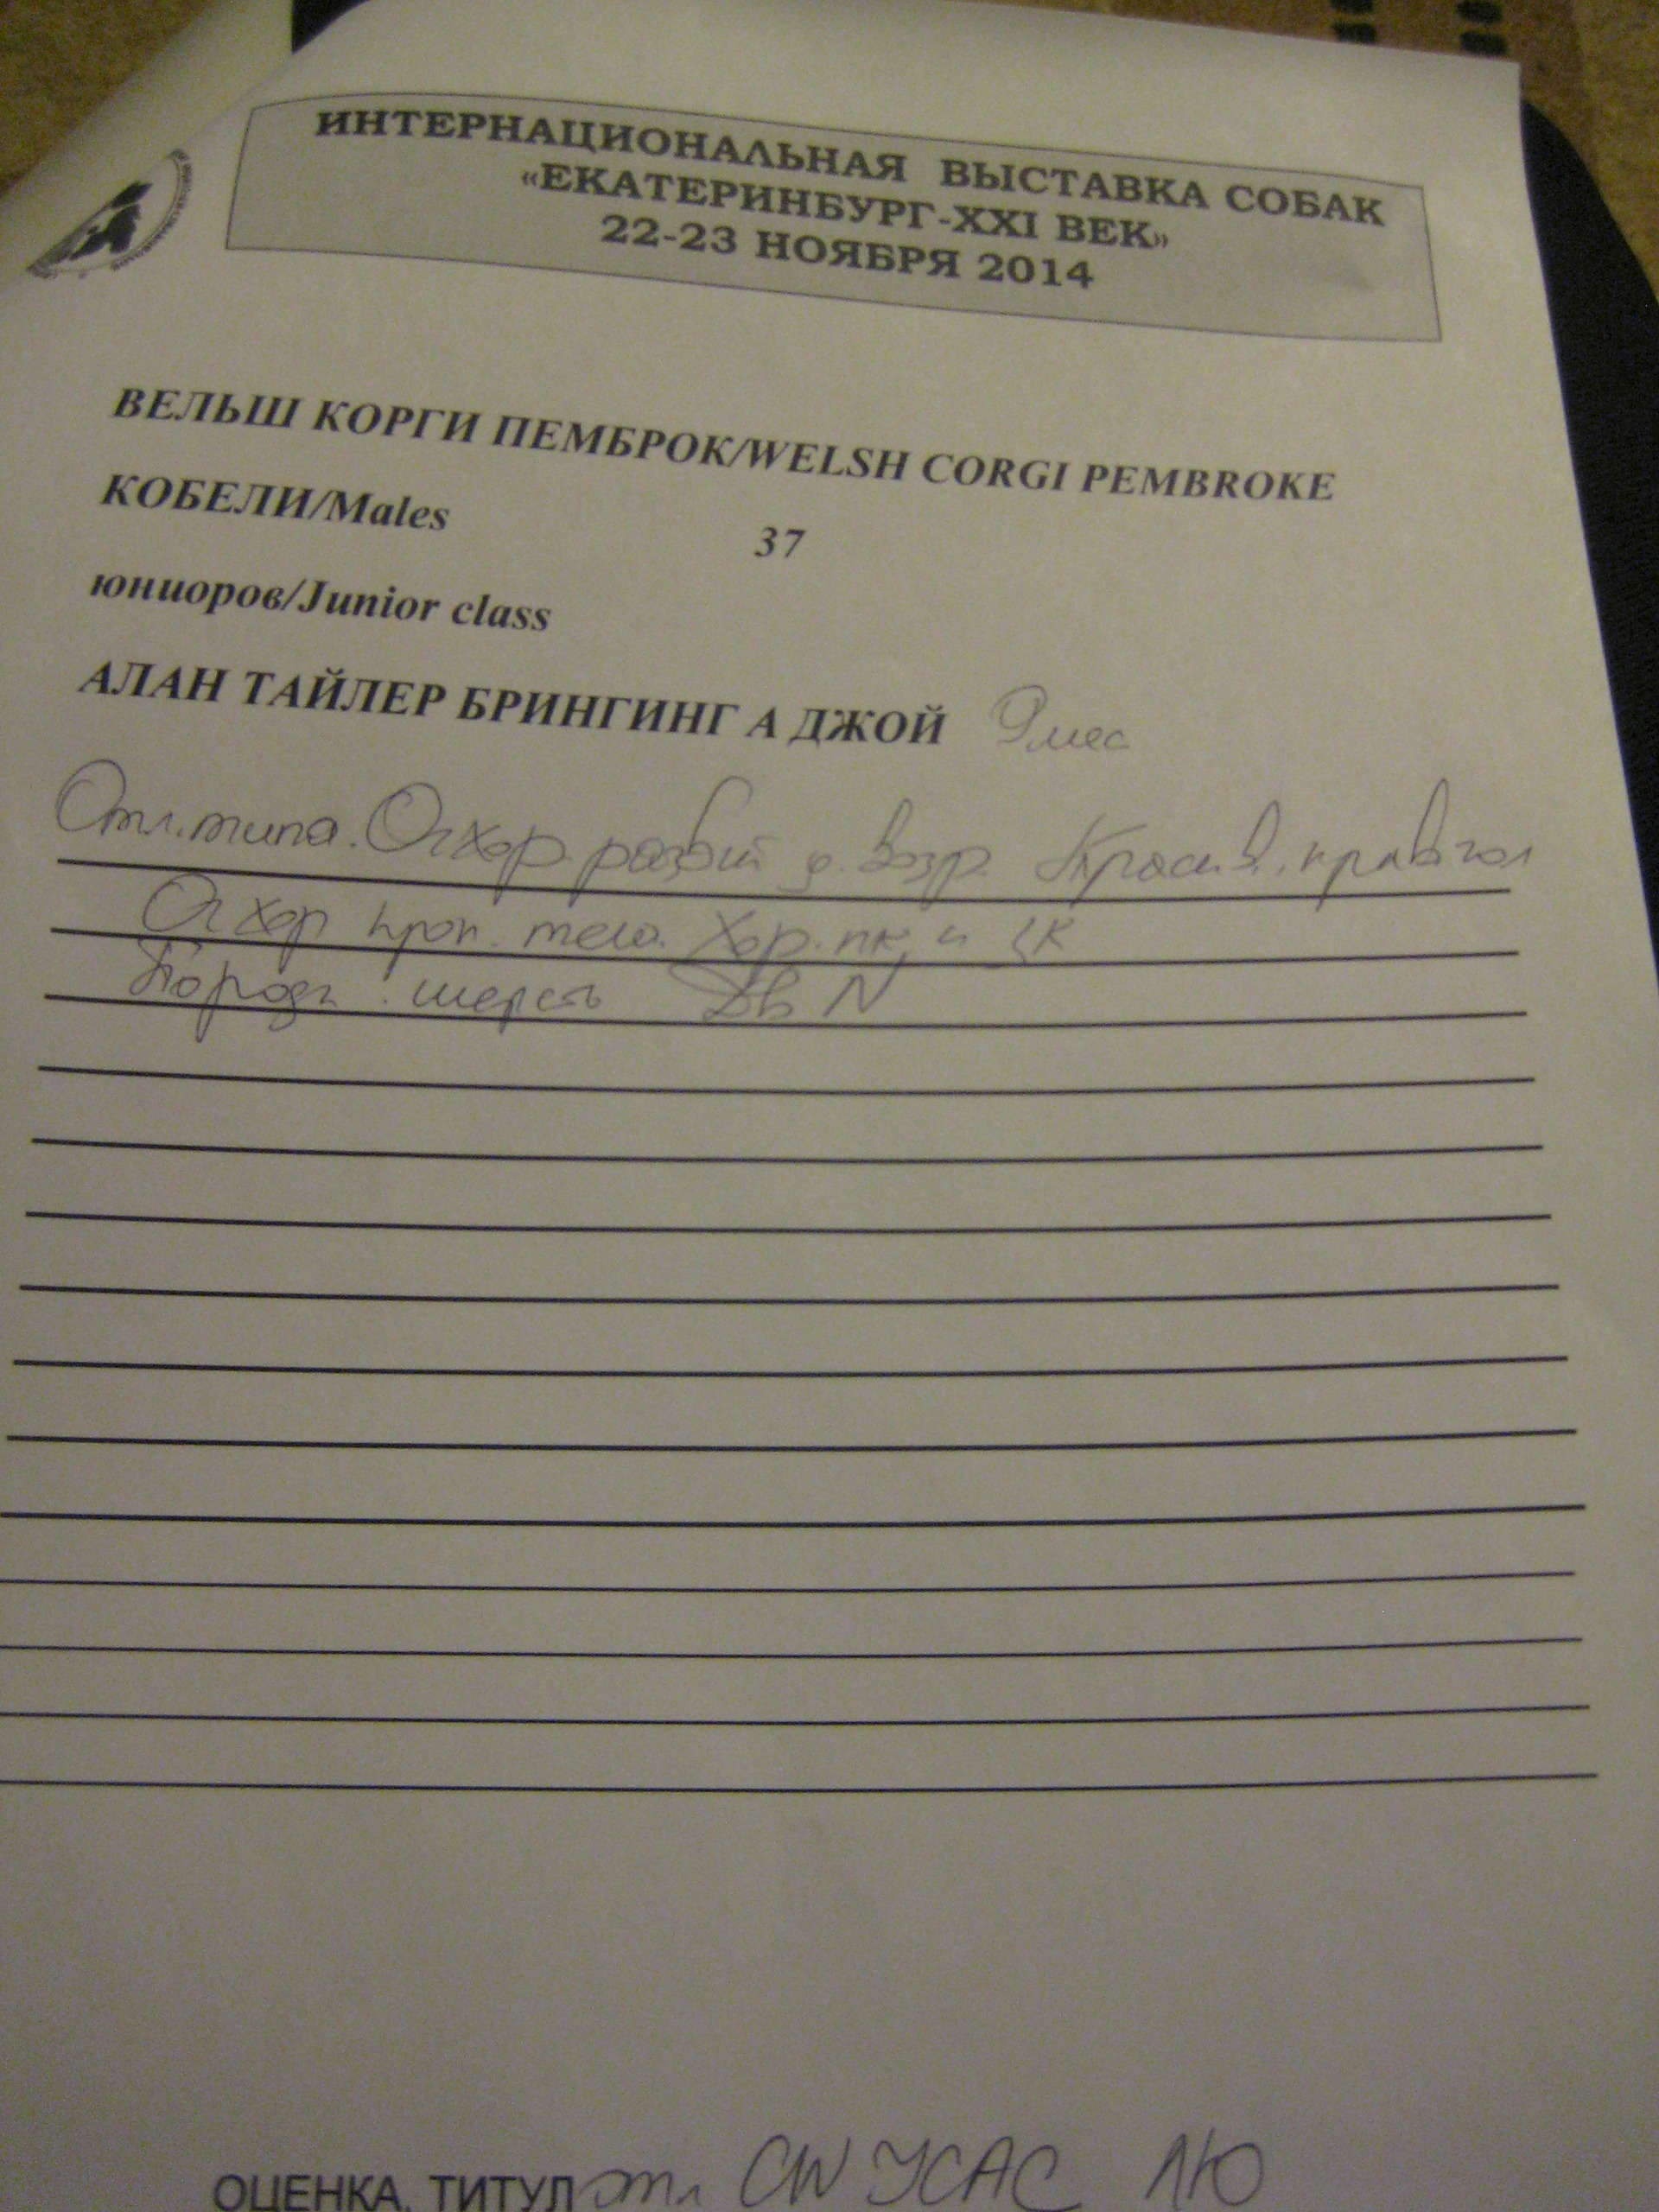 ИНТЕРНАЦИОНАЛЬНАЯ ВЫСТАВКА СОБАК
«ЕКАТЕРИНБУРГ-XXI ВЕК»
22-23 НОЯБРЯ 2014
ВЕЛЬШ КОРГИ ПЕМБРОК/WELSH CORGI PEMBROKE
КОБЕЛИ/Males 37
юниоров/Junior class
АЛАН ТАЙЛЕР БРИНГИНГ А ДЖОЙ 9 мес
Отл. типа. Оч хор. развит д. возр. Красив. прав гол
Оч хор проп. тела. Хор. пк и зк
Породн. шерсть Дв N
ОЦЕНКА, ТИТУЛ отл CW JCAC ЛЮ